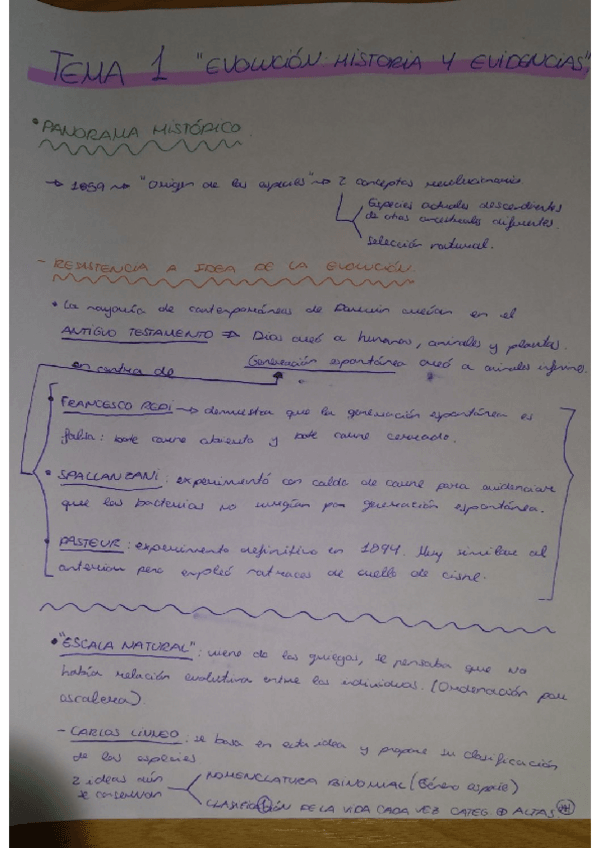 TEMA 1 "EVOLUCIÓN: HISTORIA Y EVIDENCIAS"
• PANORAMA HISTÓRICO.
→ 1859 → "Origen de las especies" → 2 conceptos revolucionarios
Especies actuales descendientes
de otras ancestrales diferentes.
Selección natural.
- RESISTENCIA A IDEA DE LA EVOLUCIÓN.
• La mayoría de contemporáneos de Darwin creían en el
ANTIGUO TESTAMENTO ⇒ Dios creó a humanos, animales y plantas.
en contra de Generación espontánea creó a animales inferiores.
• FRANCESCO REDI → demuestra que la generación espontánea es
falsa: bote carne abierto y bote carne cerrado.
• SPALLANZANI: experimentó con caldo de carne para evidenciar
que las bacterias no surgían por generación espontánea.
• PASTEUR: experimento definitivo en 1894. Muy similar al
anterior pero empleó matraces de cuello de cisne.
• "ESCALA NATURAL": viene de los griegos, se pensaba que no
había relación evolutiva entre los individuos. (Ordenación por
escalera).
- CARLOS LINNEO: se basa en esta idea y propone su clasificación
de las especies
2 ideas aún NOMENCLATURA BINOMIAL (Género especie)
se conservan CLASIFICACIÓN DE LA VIDA CADA VEZ CATEG ⊕ ALTAS